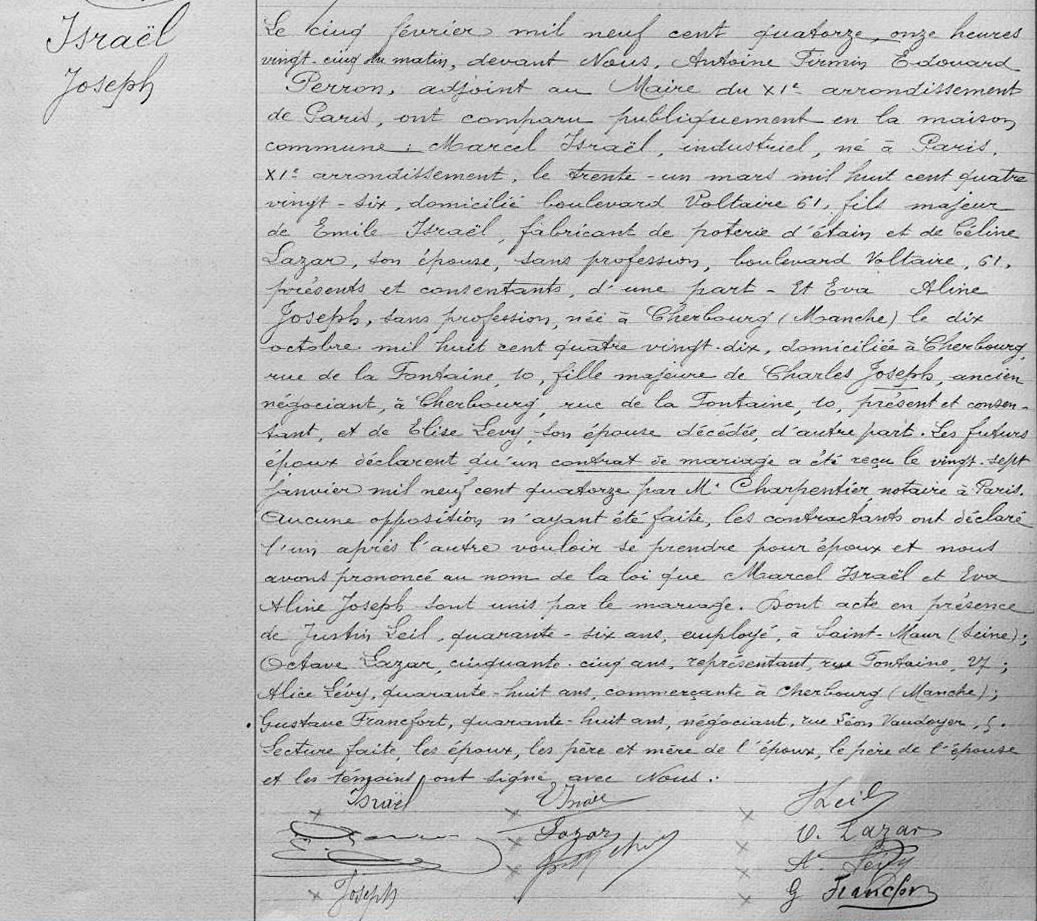 Israël
Joseph
Le cinq février mil neuf cent quatorze, onze heures
vingt-cinq du matin, devant Nous, Antoine Firmin Edouard
Perron, adjoint au Maire du XIe arrondissement
de Paris, ont comparu publiquement en la maison
commune : Marcel Israël, industriel, né à Paris,
XIe arrondissement, le trente-un mars mil huit cent quatre
vingt-six, domicilié boulevard Voltaire 61, fils majeur
de Emile Israël, fabricant de poterie d'étain et de Céline
Lazar, son épouse, sans profession, boulevard Voltaire, 61,
présents et consentants, d'une part - Et Eva Aline
Joseph, sans profession, née à Cherbourg (Manche) le dix
octobre mil huit cent quatre vingt-dix, domiciliée à Cherbourg,
rue de la Fontaine, 10, fille majeure de Charles Joseph, ancien
négociant, à Cherbourg, rue de la Fontaine, 10, présent et consen-
tant, et de Elise Levy, son épouse décédée, d'autre part. Les futurs
époux déclarent qu'un contrat de mariage a été reçu le vingt-sept
janvier mil neuf cent quatorze par Me Charpentier, notaire à Paris.
Aucune opposition n'ayant été faite, les contractants ont déclaré
l'un après l'autre vouloir se prendre pour époux et nous
avons prononcé au nom de la loi que Marcel Israël et Eva
Aline Joseph sont unis par le mariage. Dont acte en présence
de Justin Leil, quarante-six ans, employé, à Saint-Maur (Seine);
Octave Lazar, cinquante-cinq ans, représentant, rue Fontaine, 27;
Alice Lévy, quarante-huit ans, commerçante à Cherbourg (Manche);
Gustave Francfort, quarante-huit ans, négociant, rue Léon Vaudoyer, 5.
Lecture faite, les époux, les père et mère de l'époux, le père de l'épouse
et les témoins, ont signé avec Nous :
Israël
Leil
Lazar
O. Lazar
A. Lévy
Joseph
G Francfort